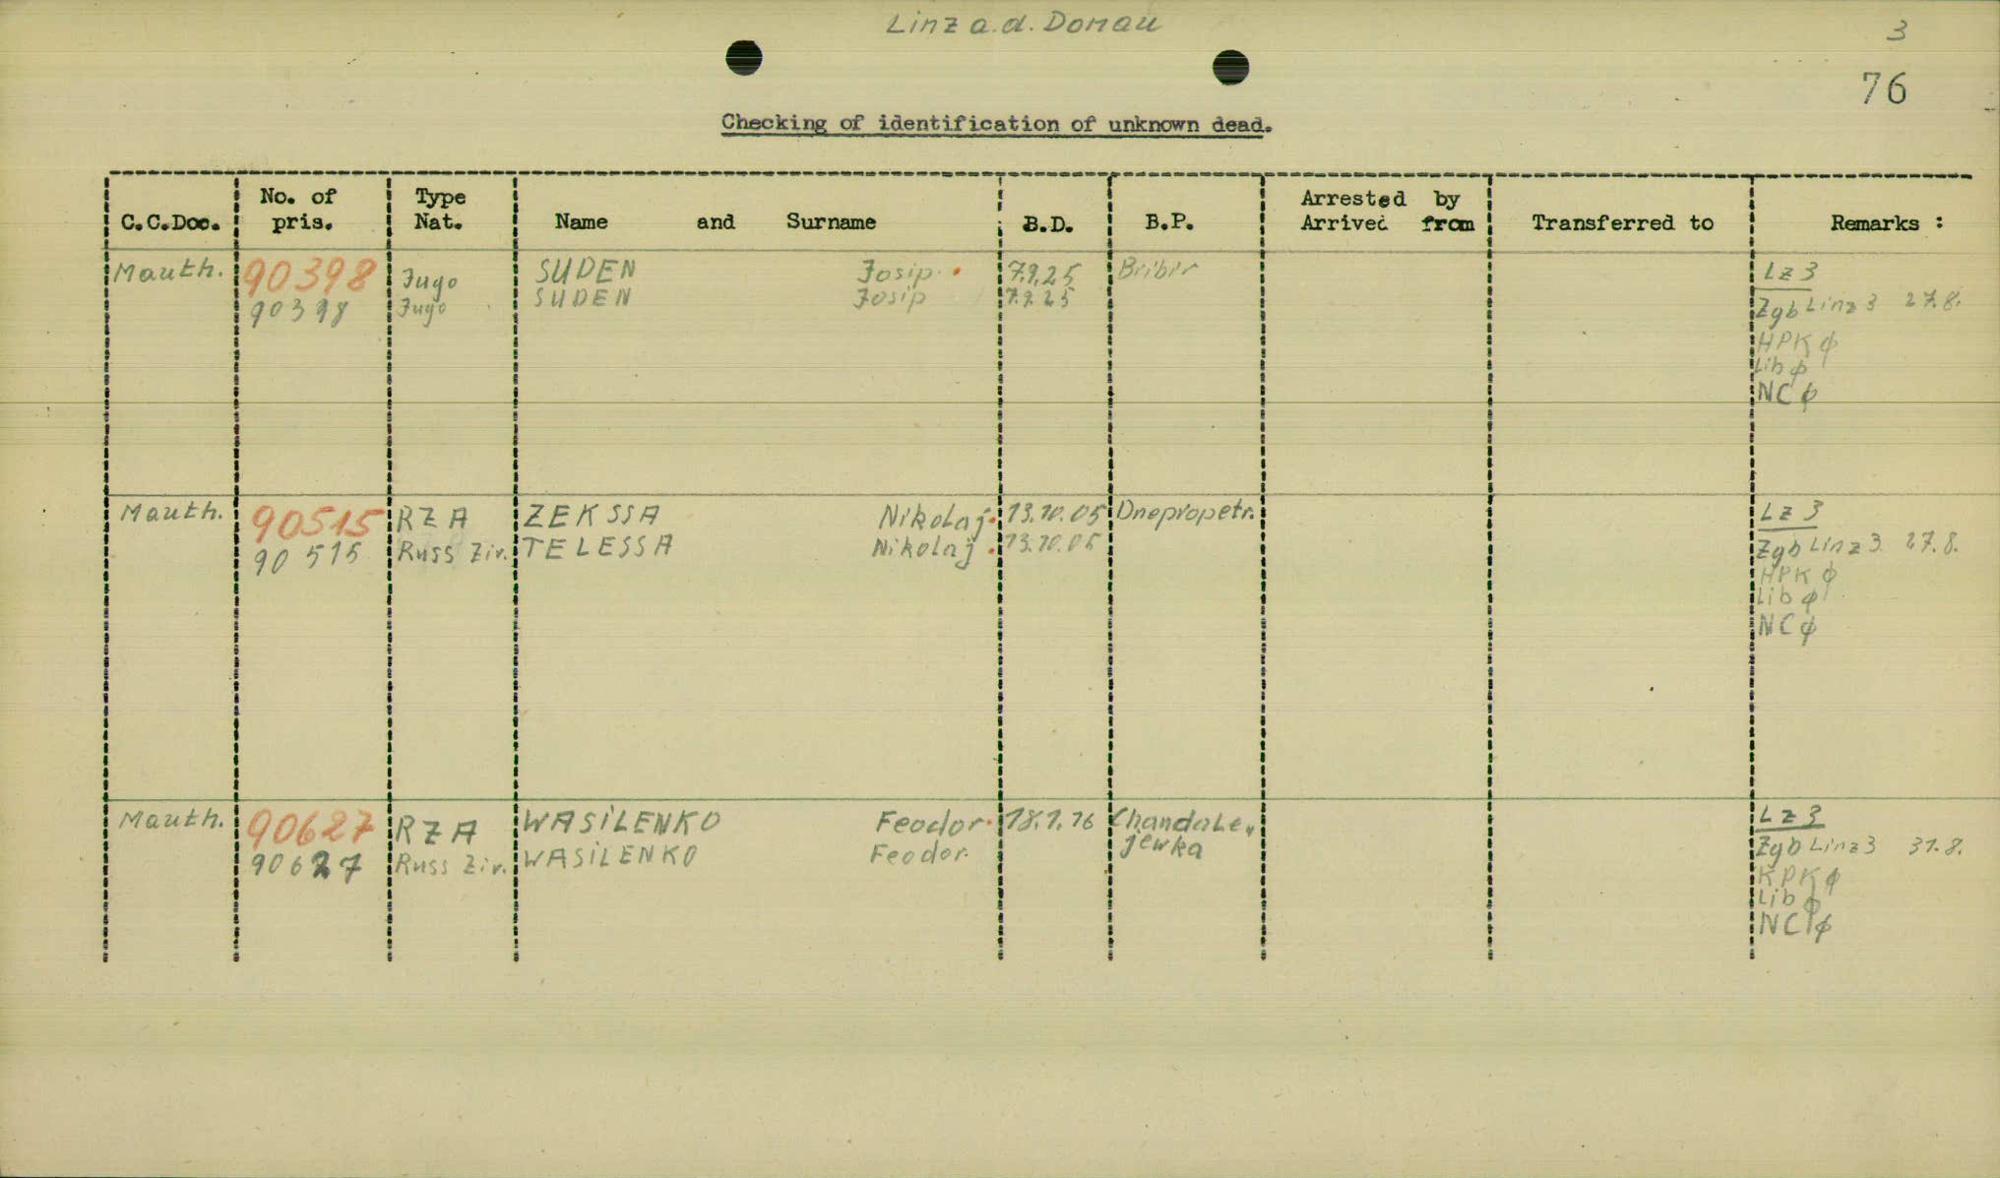 Linz a.d. Donau
3
76
Checking of identification of unknown dead.
C.C.Doc. No. of pris. Type Nat. Name and Surname B.D. B.P. Arrested by Arrived from Transferred to Remarks :
Mauth. 90398 Jugo SUDEN Josip 7.9.25 Bribir Lz 3
90398 Jugo SUDEN Josip 7.9.25 Zgb Linz 3 27.8.
HPK ϕ
Lib ϕ
NC ϕ
Mauth. 90515 RZA ZEKSSA Nikolaj 13.10.05 Dnepropetr. Lz 3
90515 Russ Ziv. TELESSA Nikolaj 13.10.05 Zgb Linz 3 27.8.
HPK ϕ
Lib ϕ
NC ϕ
Mauth. 90627 RZA WASILENKO Feodor 18.1.16 Chandale, Lz 3
90627 Russ Ziv. WASILENKO Feodor jewka Zgb Linz 3 31.8.
KPK ϕ
Lib ϕ
NC ϕ